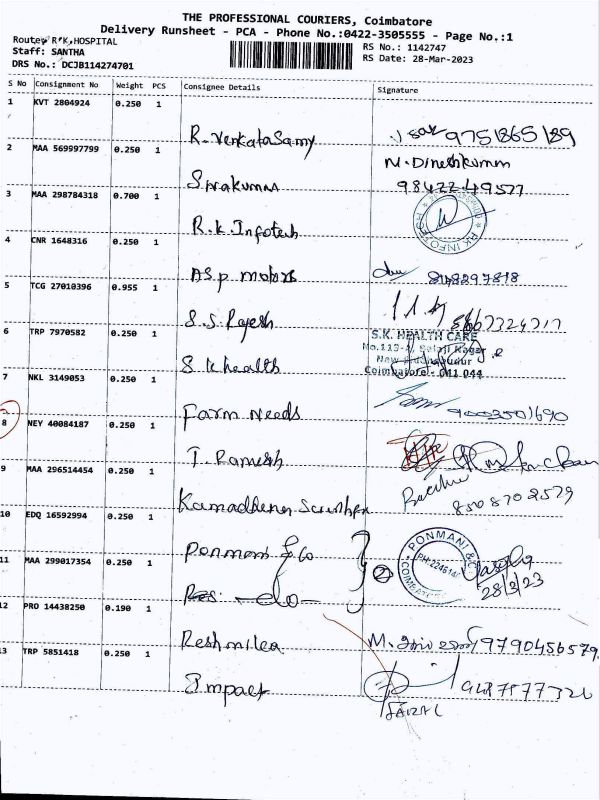 THE PROFESSIONAL COURIERS, Coimbatore
Delivery Runsheet - PCA - Phone No.:0422-3505555 - Page No.:1
Route: R*K,HOSPITAL
Staff: SANTHA
DRS No.: DCJB114274701
RS No.: 1142747
RS Date: 28-Mar-2023
S No Consignment No Weight PCS Consignee Details Signature
1 KVT 2804924 0.250 1
R. Venkatasamy 9751865189
2 MAA 569997799 0.250 1
M. Dineshkumar
Sivakumar 9842249577
3 MAA 298784318 0.700 1
R.K. Infotech
4 CNR 1648316 0.250 1
A.S.P. Motors
5 TCG 27010396 0.955 1
S.S. Rajesh
6 TRP 7970582 0.250 1
S.K. HEALTH CARE
S k health
Coimbatore - 641 044
7 NKL 3149053 0.250 1
Farm Needs 9003501690
8 NEY 40084187 0.250 1
T. Ramesh
9 MAA 296514454 0.250 1
8508702579
10 EDQ 16592994 0.250 1
Ponmani & co
PONMANI & C
11 MAA 299017354 0.250 1
-do-
28/3/23
12 PRO 14438250 0.190 1
Reshmilea 9790456579
13 TRP 5851418 0.250 1
Impact
FAIZAL